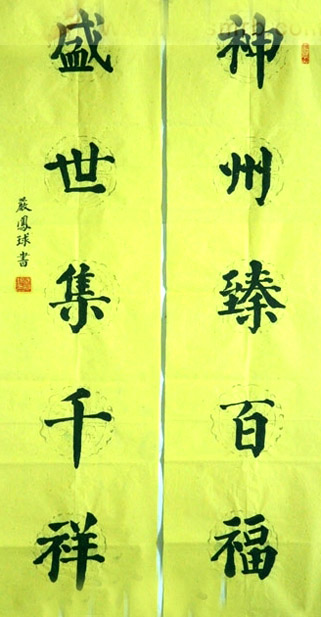 神州臻百福
盛世集千祥
嚴鳳球書